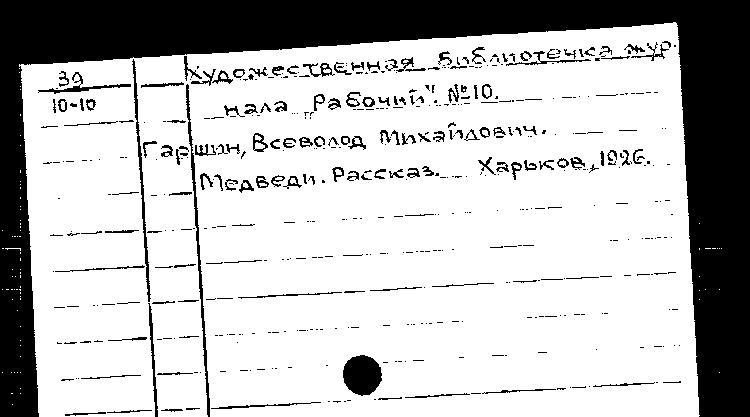 39
10-10
Художественная библиотечка жур-
нала „Рабочий". №10.
Гаршин, Всеволод Михайлович.
Медведи. Рассказ. Харьков, 1926.